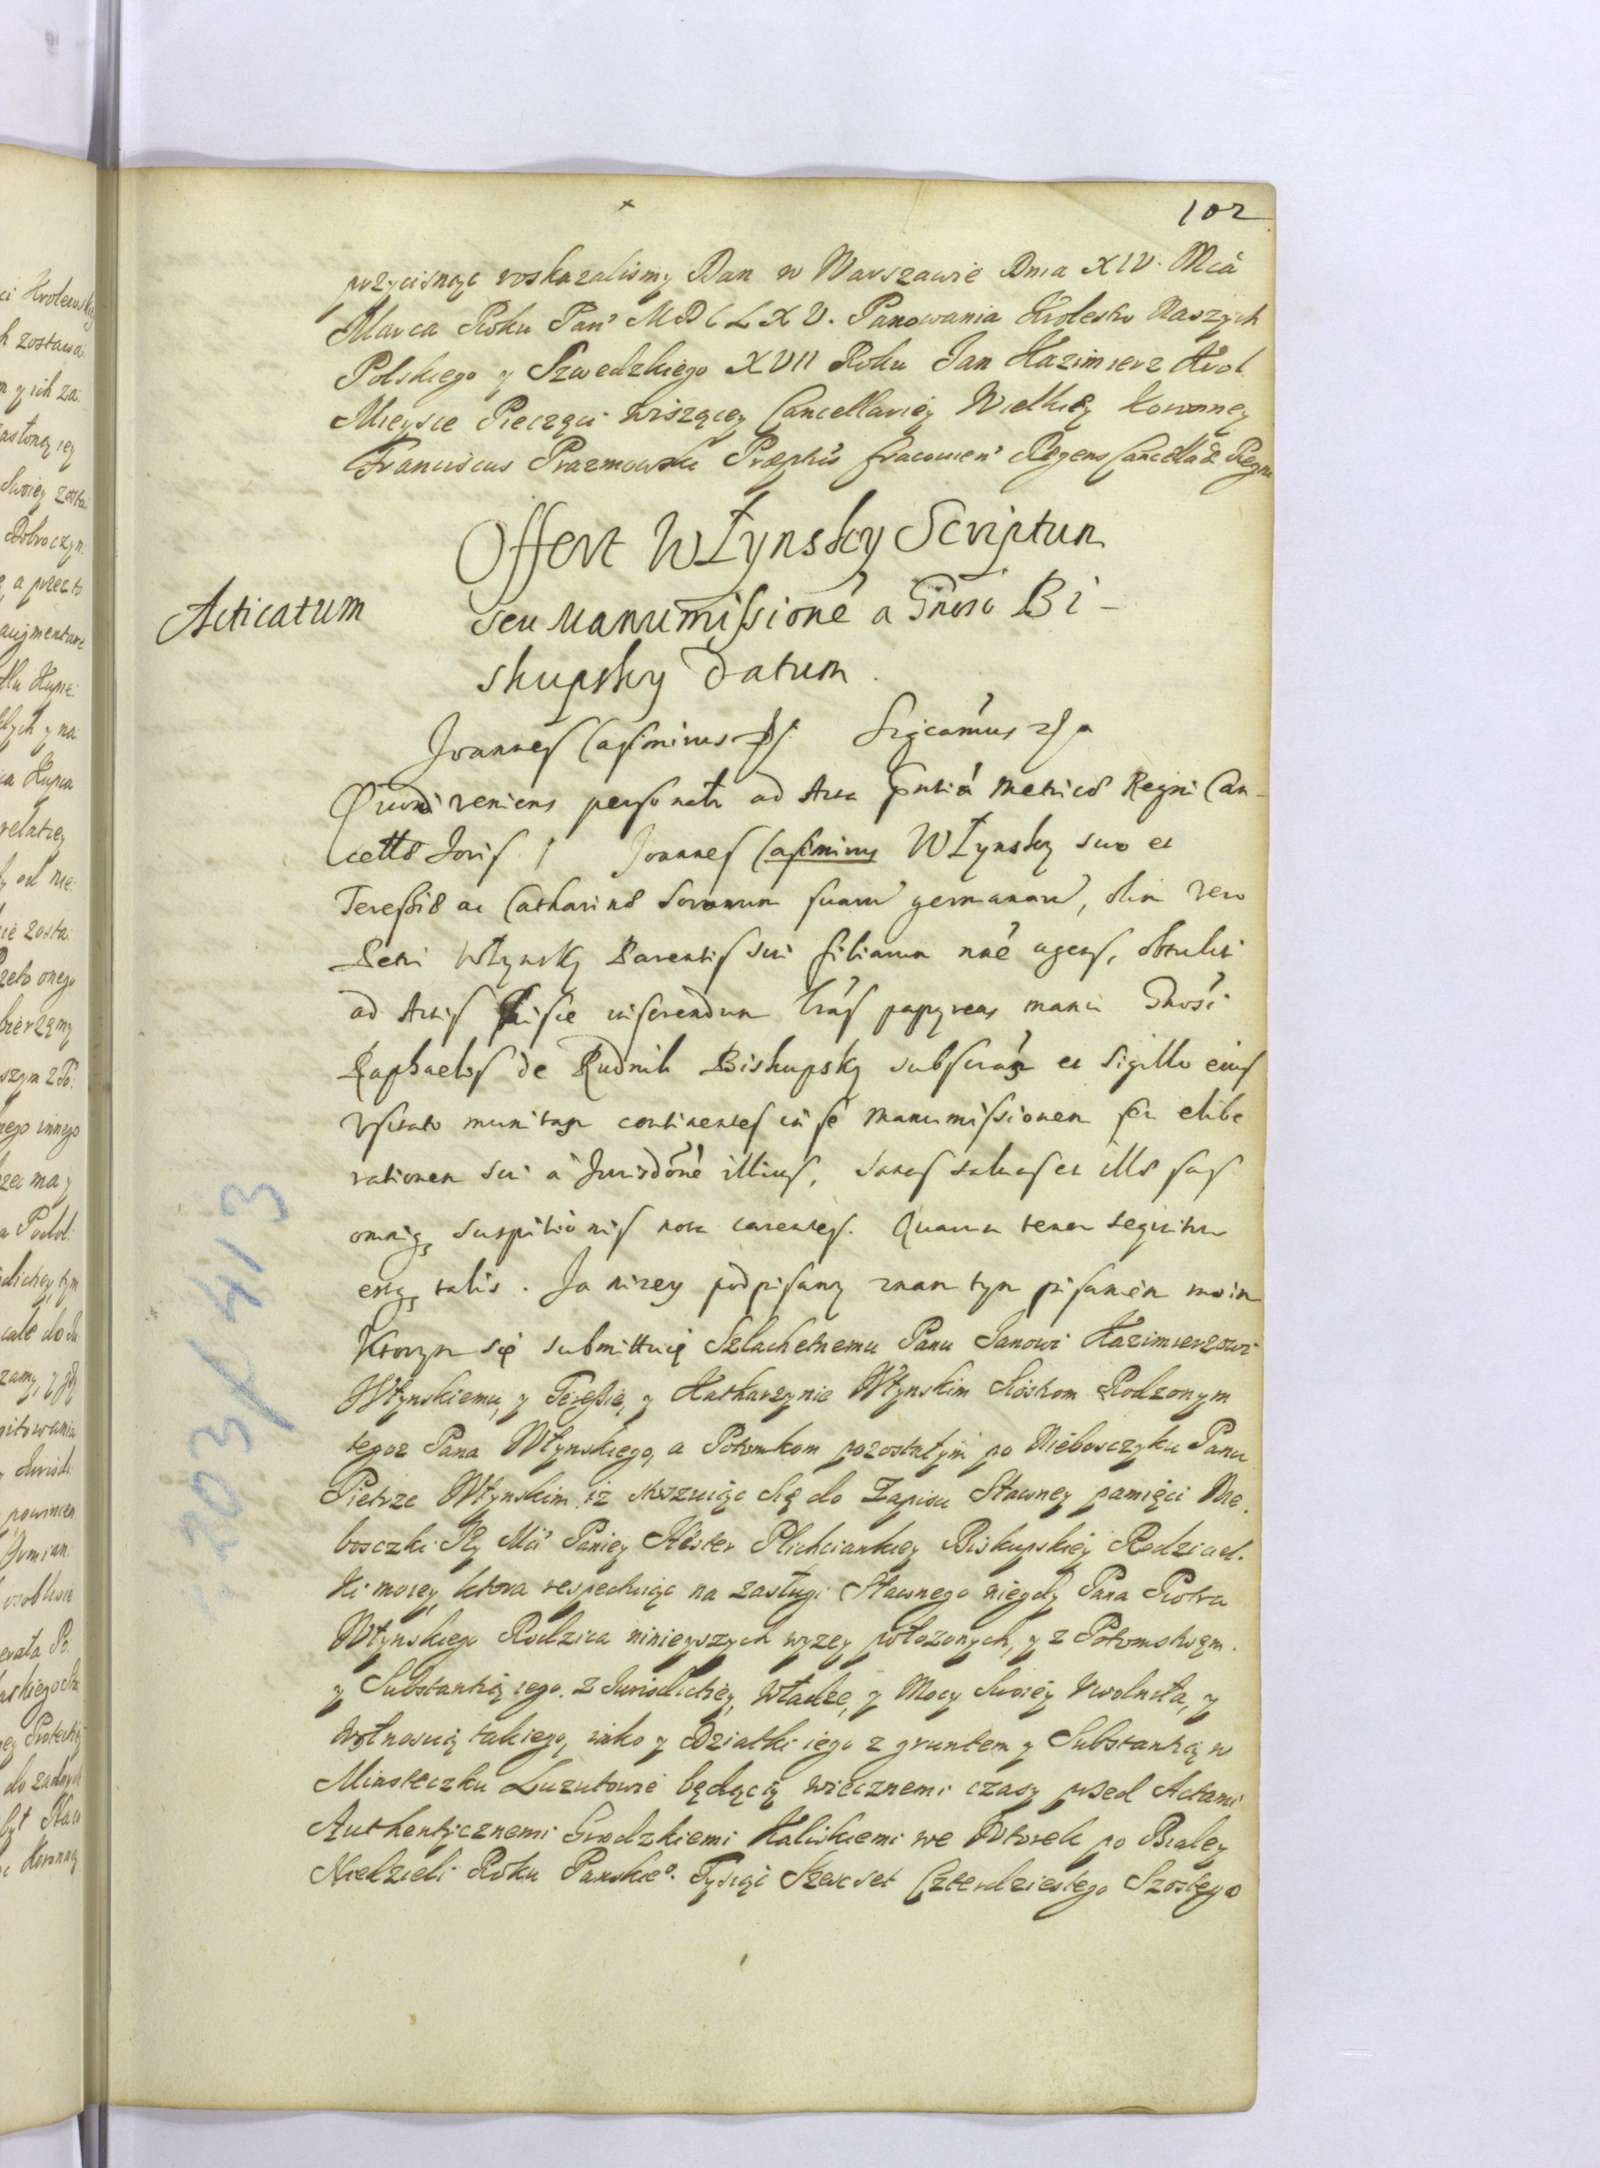 102
przycisnąć roskazalismy Dan w Warszawie Dnia XIV. Mcá
Marca Roku Pan' MDCLXV. Panowania Krolestw Naszych
Polskiego y Szwedzkiego XVII Roku Jan Kazimierz Krol
Mieysce Pieczęci wiszącey Cancellariey Wielkiey Koronney
Franciscus Prazmowski Præptus Cracovien' Regens Cancella Regni
Offert Włynsky Scriptum
seu Manumissioné a Gnoso Bi-
skupsky datum.
Acticatum
Joannes Casimirus Significamus
veniens personalr ad Acta Metrices Regni Can-
Joannes Casimirus Włynsky suo et
Teressiæ ac Catharinæ Sororum suaru germanaru, olim vero
Petri Włynsky Parentis sui filiarum nọé agens, obtulit
ad Actis inserendum lras papyreas manu Gnosi
Raphaelis de Rudnik Biskupsky subscrás et Sigillo eius
munitas continentes in se Manumissionem seu elibe
rationem sui a Jurisdoné illius, sanas salvas et illæsas
omniq suspitionis nota carentes. Quarum tenor sequitur
estq talis. Ja nizey podpisany znam tym pisaniem moim
Ktorym się submittuię Szlachetnemu Panu Janowi Kazimierzowi
Włynskiemu, y Teressię y Katharzynie Włynskim Siostrom Rodzonym
tegoz Pana Włynskiego, a Potomkom pozostałym po Nieboszczyku Panu
Pietrze Włynskim, iz stoszuiąc się do Zapisu Sławney pamięci Nie.
boszczki Jey Mci Paniey Hester Plichciankiey Biskupskiey Rodziciel.
ki moiey, ktora respectuiąc na zasługi Sławnego niegdy Pana Piotra
Włynskiego Rodzica ninieyszych wyzey połozonych, y z Potomstwem.
y Substantią iego. z Jurisdictiey, władze, y Mocy Swoiey Uwolniła, y
wolnoscią takiego, iako y Dziatki iego z gruntem y Substantią w
Miasteczku Luzutowie będącią wiecznemi czasy przed Actami
Authentycznemi Grodzkiemi Kaliskiemi we Wtorek po Białey
Niedzieli Roku Panskieo. Tysiąc Szescset Czterdziestego Szostego
203/413